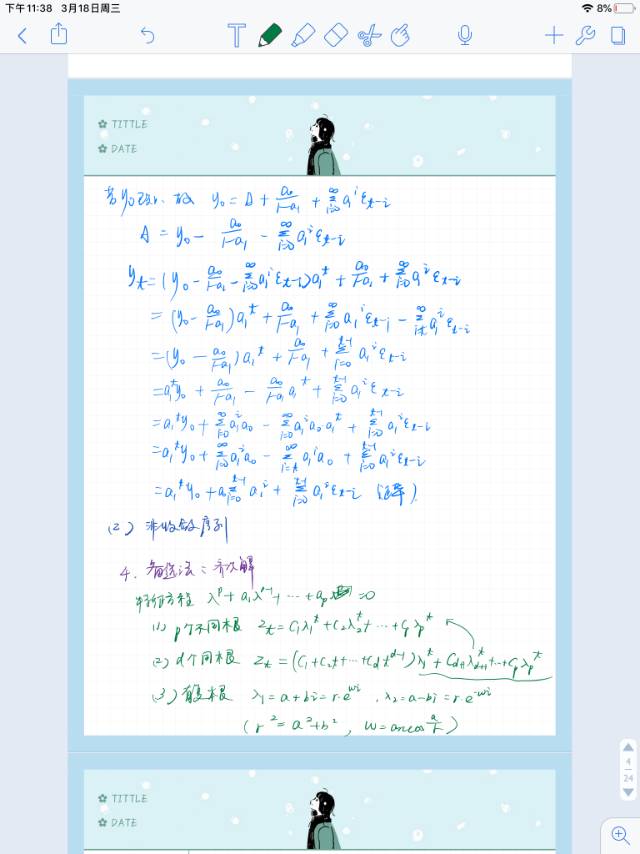 下午11:38 3月18日周三
8%
TITTLE
DATE
若y₀已知, 故 y₀ = A + a₀/(1-a₁) + Σ_{i=0}^{∞} a₁ⁱ ε_{t-i}
A = y₀ - a₀/(1-a₁) - Σ_{i=0}^{∞} a₁ⁱ ε_{t-i}
y_t = (y₀ - a₀/(1-a₁) - Σ_{i=0}^{∞} a₁ⁱ ε_{t-i}) a₁ᵗ + a₀/(1-a₁) + Σ_{i=0}^{∞} a₁ⁱ ε_{t-i}
= (y₀ - a₀/(1-a₁)) a₁ᵗ + a₀/(1-a₁) + Σ_{i=0}^{∞} a₁ⁱ ε_{t-i} - Σ_{i=t}^{∞} a₁ⁱ ε_{t-i}
= (y₀ - a₀/(1-a₁)) a₁ᵗ + a₀/(1-a₁) + Σ_{i=0}^{t-1} a₁ⁱ ε_{t-i}
= a₁ᵗ y₀ + a₀/(1-a₁) - a₀/(1-a₁) a₁ᵗ + Σ_{i=0}^{t-1} a₁ⁱ ε_{t-i}
= a₁ᵗ y₀ + Σ_{i=0}^{∞} a₁ⁱ a₀ - Σ_{i=0}^{∞} a₁ⁱ a₀ a₁ᵗ + Σ_{i=0}^{t-1} a₁ⁱ ε_{t-i}
= a₁ᵗ y₀ + Σ_{i=0}^{∞} a₁ⁱ a₀ - Σ_{i=t}^{∞} a₁ⁱ a₀ + Σ_{i=0}^{t-1} a₁ⁱ ε_{t-i}
= a₁ᵗ y₀ + a₀ Σ_{i=0}^{t-1} a₁ⁱ + Σ_{i=0}^{t-1} a₁ⁱ ε_{t-i}
(2) 非收敛序列
4. 备选法: 齐次解
特征方程 λᵖ + a₁λᵖ⁻¹ + ⋯ + aₚ = 0
(1) p个不同根 Z_t = C₁λ₁ᵗ + C₂λ₂ᵗ + ⋯ + Cₚλₚᵗ
(2) d个同根 Z_t = (C₁ + C₂t + ⋯ + C_d tᵈ⁻¹) λ₁ᵗ + C_{d+1}λ_{d+1}ᵗ + ⋯ + Cₚλₚᵗ
(3) 复根 λ₁ = a + bi = r·e^{wi}, λ₂ = a - bi = r·e^{-wi}
(r² = a² + b², w = arccos a/r)
4
24
TITTLE
DATE